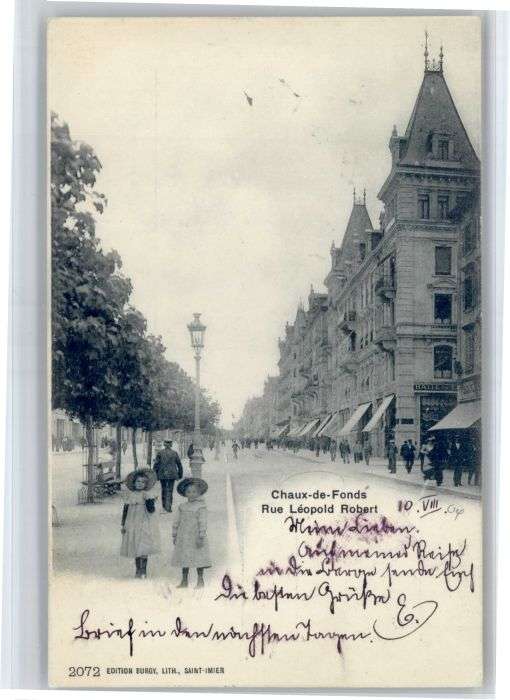 Chaux-de-Fonds
Rue Léopold Robert
10. VIII. 04
Meine Lieben.
Auf meiner Reise
in die Berge sende Euch
die besten Grüße E.
Brief in den nächsten Tagen.
2072 EDITION BURGY, LITH., SAINT-IMIER